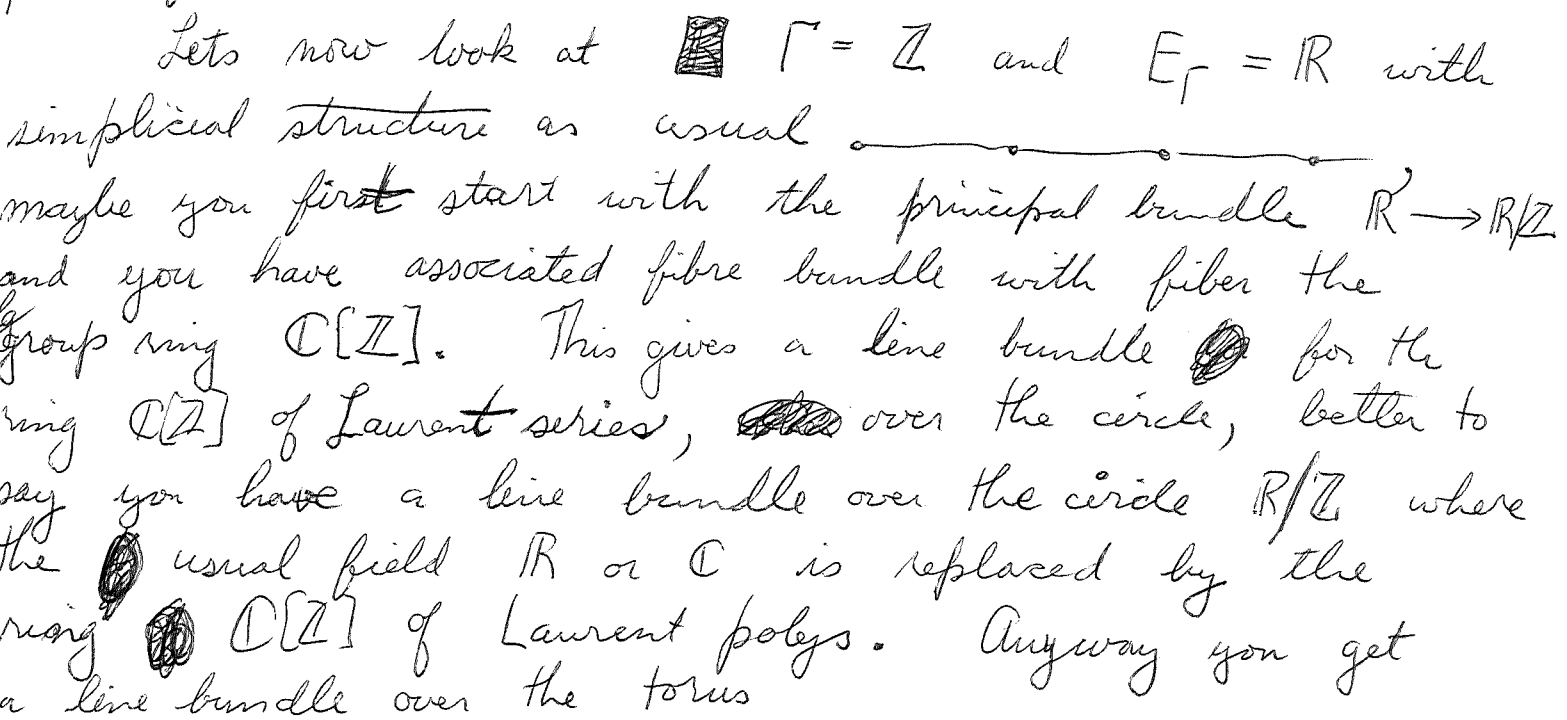 Lets now look at Γ = ℤ and E_Γ = ℝ with
simplicial structure as usual
maybe you first start with the principal bundle ℝ → ℝ/ℤ
and you have associated fibre bundle with fiber the
group ring ℂ[ℤ]. This gives a line bundle for th
ring ℂ[ℤ] of Laurent series, over the circle, better to
say you have a line bundle over the circle ℝ/ℤ where
the usual field ℝ or ℂ is replaced by the
ring ℂ[ℤ] of Laurent polys. Anyway you get
a line bundle over the torus